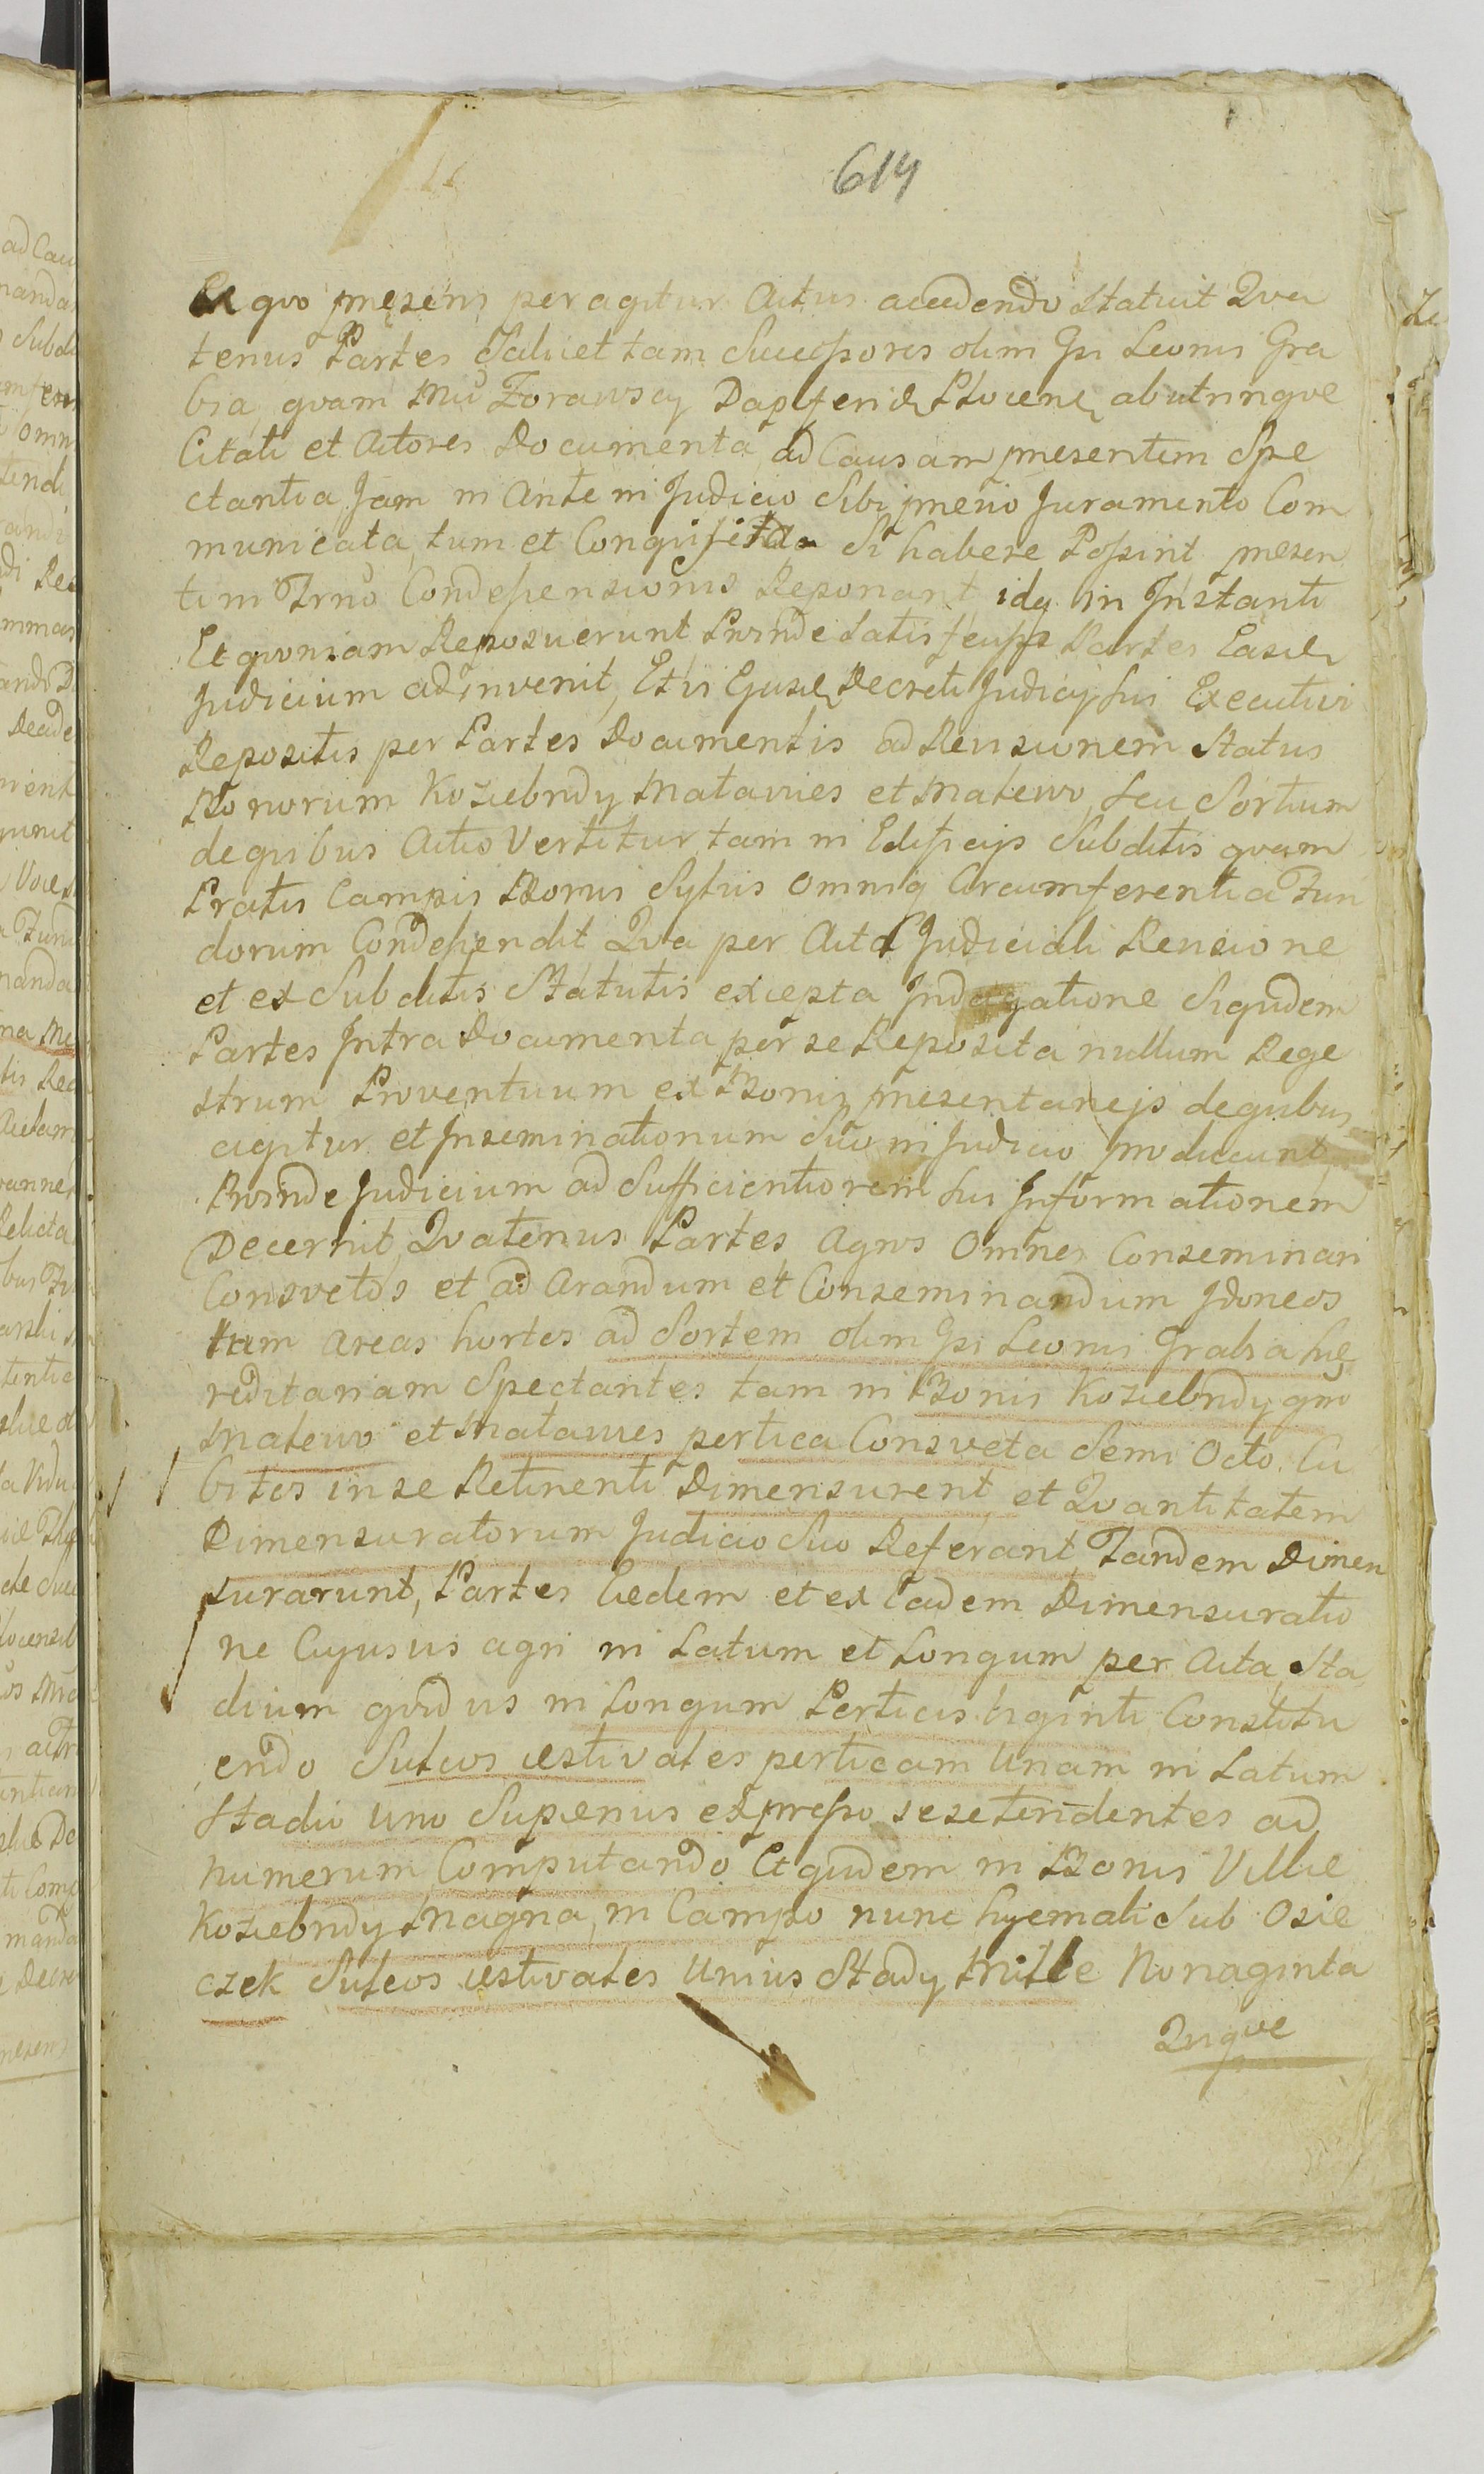 614
Ex quo præsens peragitur Actus accedendo Statuit Qua
tenus Partes Saluet tam Successores olim Gsi Leonis Gra
bia, qvam Mci Zorawscy Dapiferidæ Plocenẽ, ab utrinqve
Citati et Actores Documenta ad Causam presentem Spe
ctantia Jam in Ante in Judicio Sibi prævio Juramento Com
municata, tum et Conquisita Si habere Possint presen
tim Trno Condescensionis Reponant idq in Instanti
Et qvoniam Reposuerunt Proinde Satisfecisse Partes Easdẽ
Judicium adinvenit, Et vi Ejusdẽ Decreti Judicÿ Sui Executivi
Repositis per Partes Documentis ad Revisionem Status
Bonorum Koziebrody Matawies et Matewo, seu Sortium
de quibus Actio Vertitur, tam in Edificijs Subditis qvam
Pratis Campis Boris Sylvis omniq Circumferentia Fun
dorum Condescendit Qva per Acta Judiciali Revisione
et ex Subditis Statutis excepta Indagatione Siquidem
Partes Intra Documenta per se Reposita nullum Rege
strum Proventuum ex Bonis presentaneis de quibus
agitur et Inseminationum Suo in Judicio producunt
Proinde Judicium ad Sufficientiorem Sui Informationem
Decernit, Qvatenus Partes Agros Omnes Conseminari
Consvetos et ad Arandum et Conseminandum Idoneos
tum areas hortos ad Sortem olim Gsi Leonis Grabia hæ
reditariam Spectantes tam in Bonis Koziebrody qm̃o
Matewo et Matawies pertica Consveta Semi Octo Cu
bitos in se Retinenti Dimensurent et Qvantitatem
Dimensuratorum Judicio Suo Referant, Tandem Dimen
surarunt, Partes Eædem et ex Eadem Dimensuratio
ne Cujusvis agri in Latum et Longum per Acta, Sta
dium qvodvis in Longum Perticis Viginti Constitu
endo Sulcos æstivales perticam Unam in Latum
Stadio Uno Superius expresso sese tendentes ad
numerum Computando Et quidem in Bonis Villæ
Koziebrody Magna, in Campo nunc hyemali Sub Osie
czek Sulcos æstivales Unius Stadÿ Mille Nonaginta
Qnqve